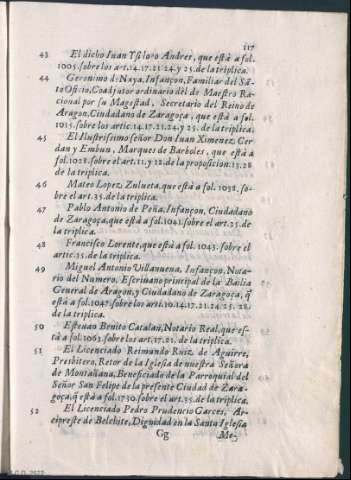 117
43 El dicho Iuan Ysidoro Andres, que està a fol.
1005. sobre los art. 14. 17. 21. 24. y 25. de la triplica.
44 Geronimo d: Naya, Infançon, Familiar del Sã-
to Oficio, Coadjutor ordinario del de Maestro Ra-
cional por su Magestad, Secretario del Reino de
Aragon, Ciudadano de Zaragoça, que està a fol.
1015. sobre los artic. 14. 17. 21. 24. y 25. de la triplica.
45 El Illustrissimo señor Don Iuan Ximenez, Cer
dan y Embun, Marques de Barboles, que està a
fol. 1028. sobre el art. 11. y 12. de la proposicion. 15. 28
de la triplica.
46 Mateo Lopez, Zulueta, que està a fol. 1038. so-
bre el art. 35. de la triplica.
47 Pablo Antonio de Peña, Infançon, Ciudadano
de Zaragoça, que està a fol. 1041. sobre el art. 25. de
la triplica.
48 Francisco Lorente, que està a fol. 1043. sobre el
artic. 15. de la triplica.
49 Miguel Antonio Villanueua, Infançon, Nota-
rio del Numero, Escriuano principal de la Bailia
General de Aragon, y Ciudadano de Zaragoça, q̃
està a fol. 1047. sobre los art. 10. 14. 17. 21. 24. 25. 28.
de la triplica.
50 Esteuan Benito Catalan, Notario Real, que es-
tà a fol. 1062. sobre los art. 17. 21. de la triplica.
51 El Licenciado Reimundo Ruiz de Aguirre,
Presbitero, Retor de la Iglesia de nuestra Señora
de Montañana, Beneficiado de la Parroquial del
Señor San Felipe de la presente Ciudad de Zara-
goça, q̃ està a fol. 1730. sobre el art. 35. de la triplica.
52 El Licenciado Pedro Prudencio Garces, Ar-
cipreste de Belchite, Dignidad en la Santa Iglesia
Gg Me-